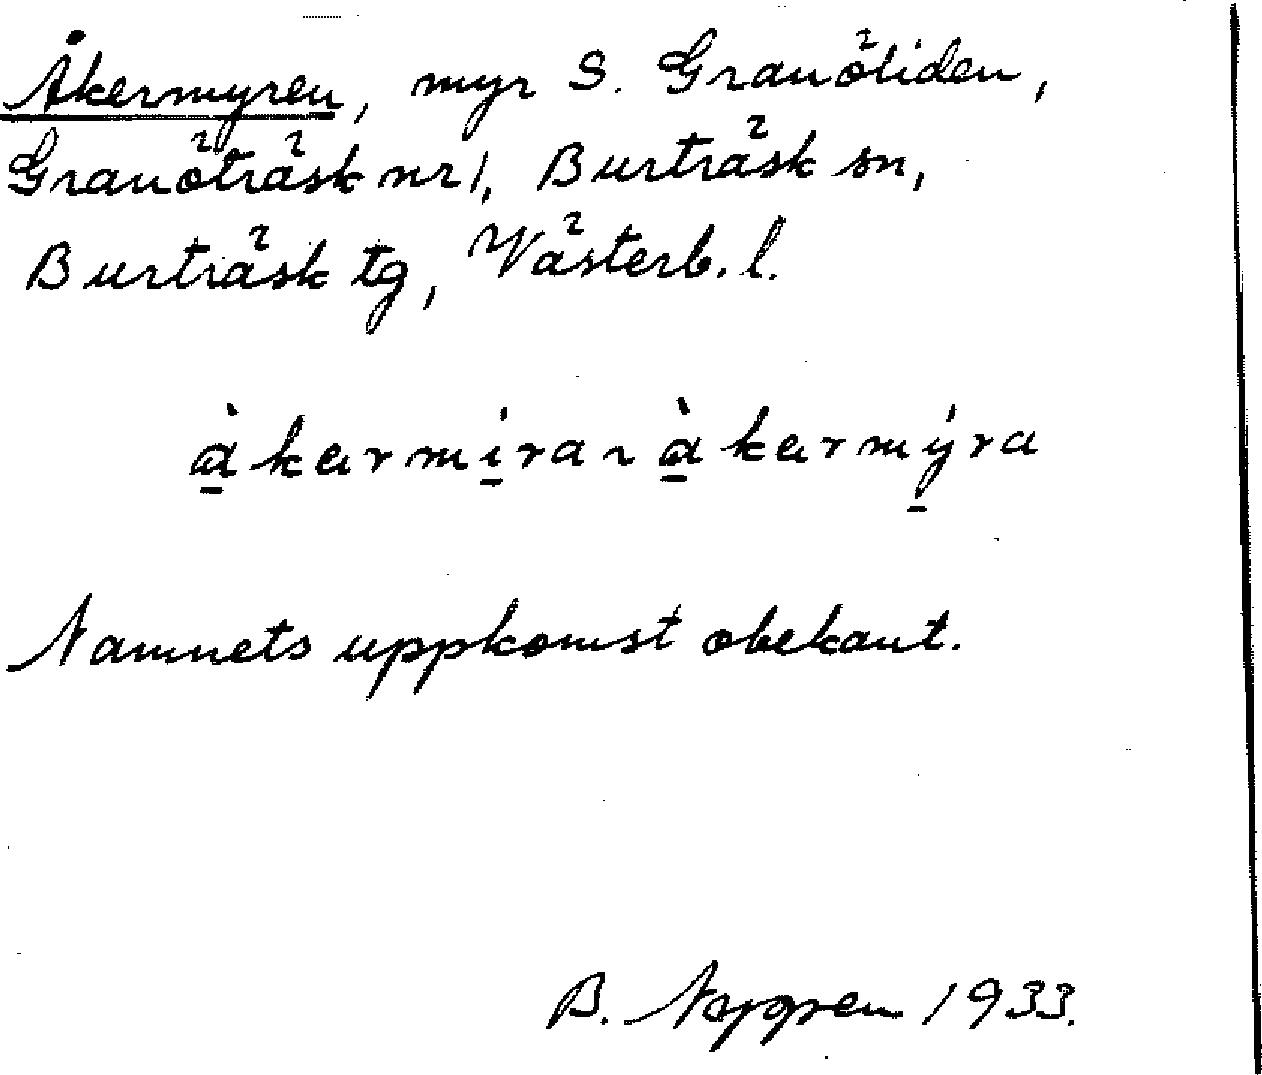 Åkermyren, myr S. Granöliden,
Granöträsk nr 1, Burträsk sn,
Burträsk tg, Västerb. l.
à̱kermí̱ra ~ à̱kermý̱ra
Namnets uppkomst obekant.
B. Nygren 1933.